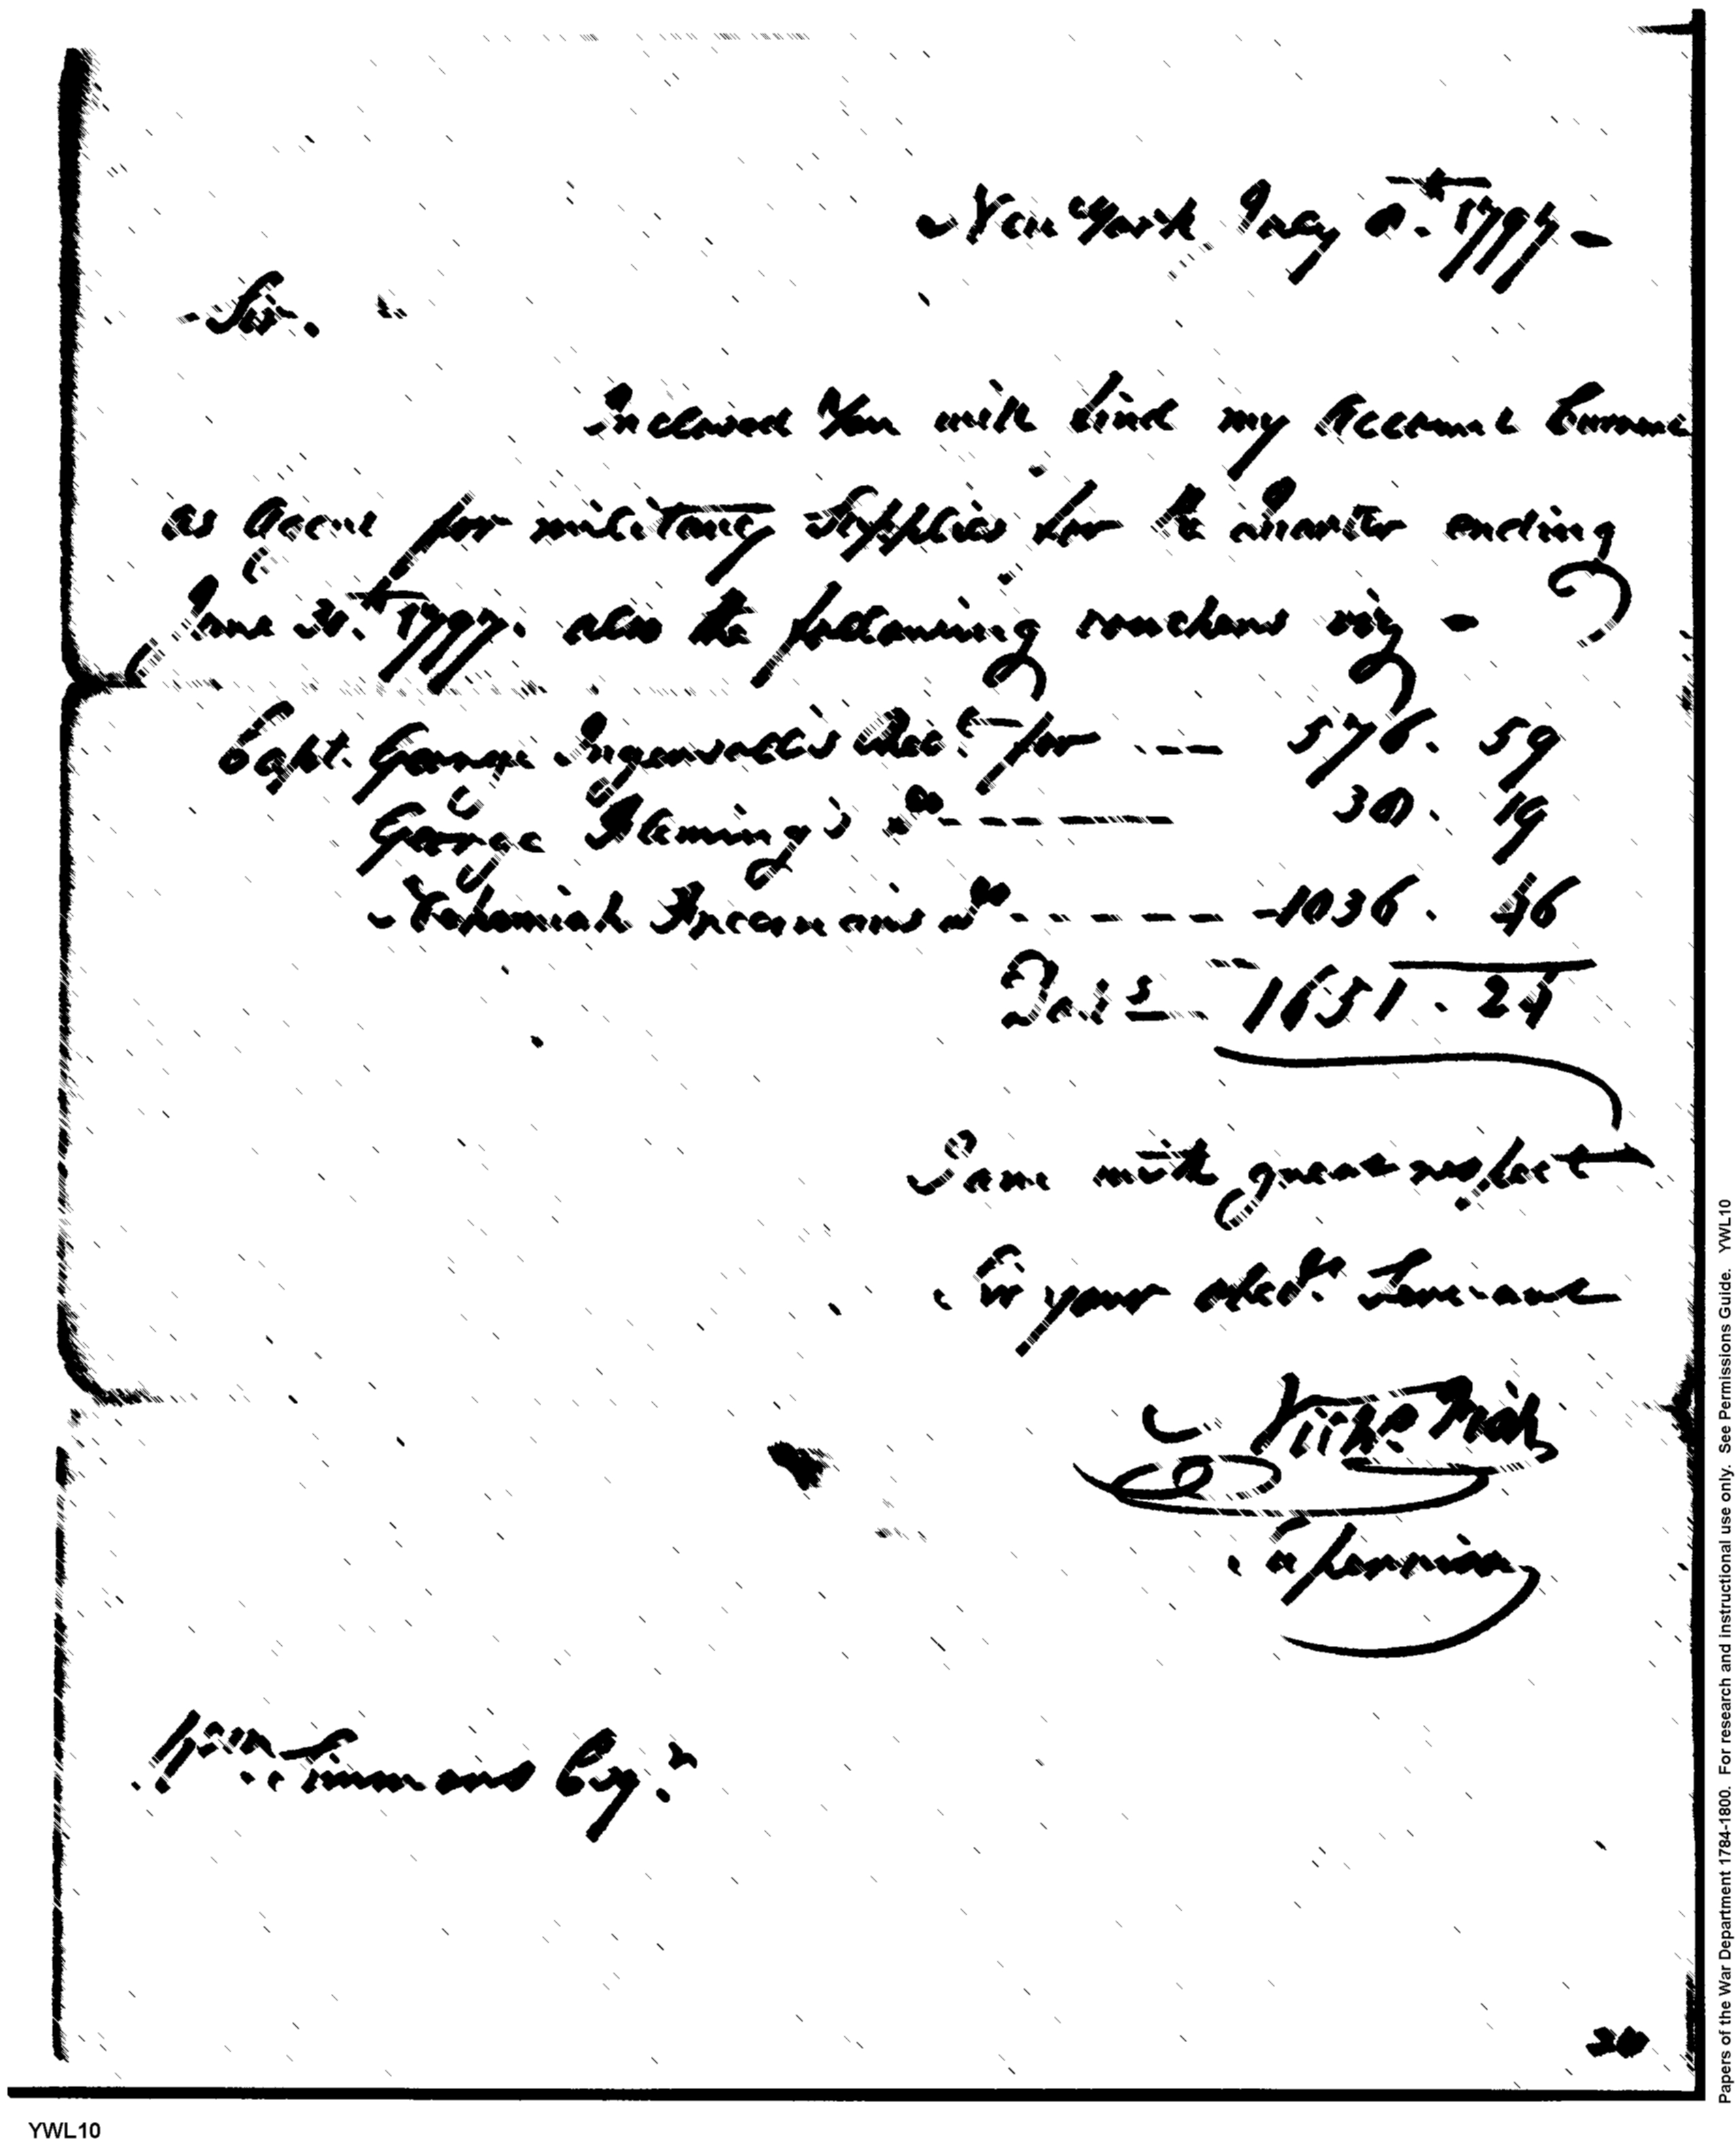 New York July 8.th 1797 -
Sir.
Inclosed You will find my Account Current
as Agent for military Supplies for the Quarter ending
June 30.th 1797. also the following vouchers viz -
Capt. George Ingersoll's Rec.t for --- 576. 59
George Fleming's do ------ 38. 19
Nehemiah Freeman's do ------ 1036. 46
Dol.s 1651. 24
I am with great respect
Sir your obed.t Servant
Nichs. Fish
Wm. Simmons Esq.r
YWL10
Papers of the War Department 1784-1800. For research and instructional use only. See Permissions Guide. YWL10